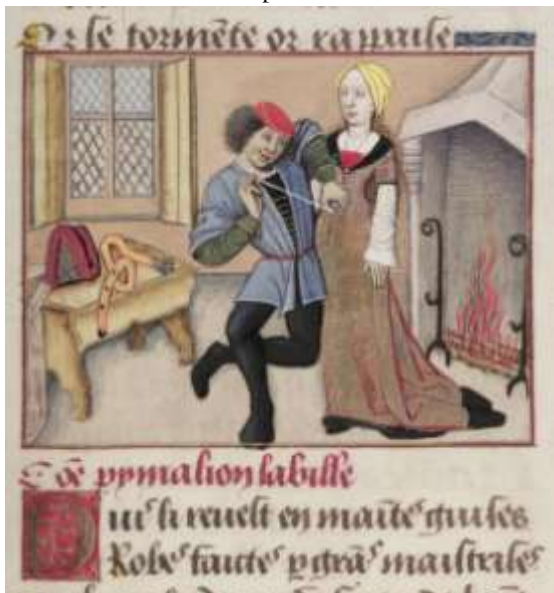 Or le tormēte or rapaise
pymalion labille
Puis li revest en maītes guises
Robes faictes p grās maistrises